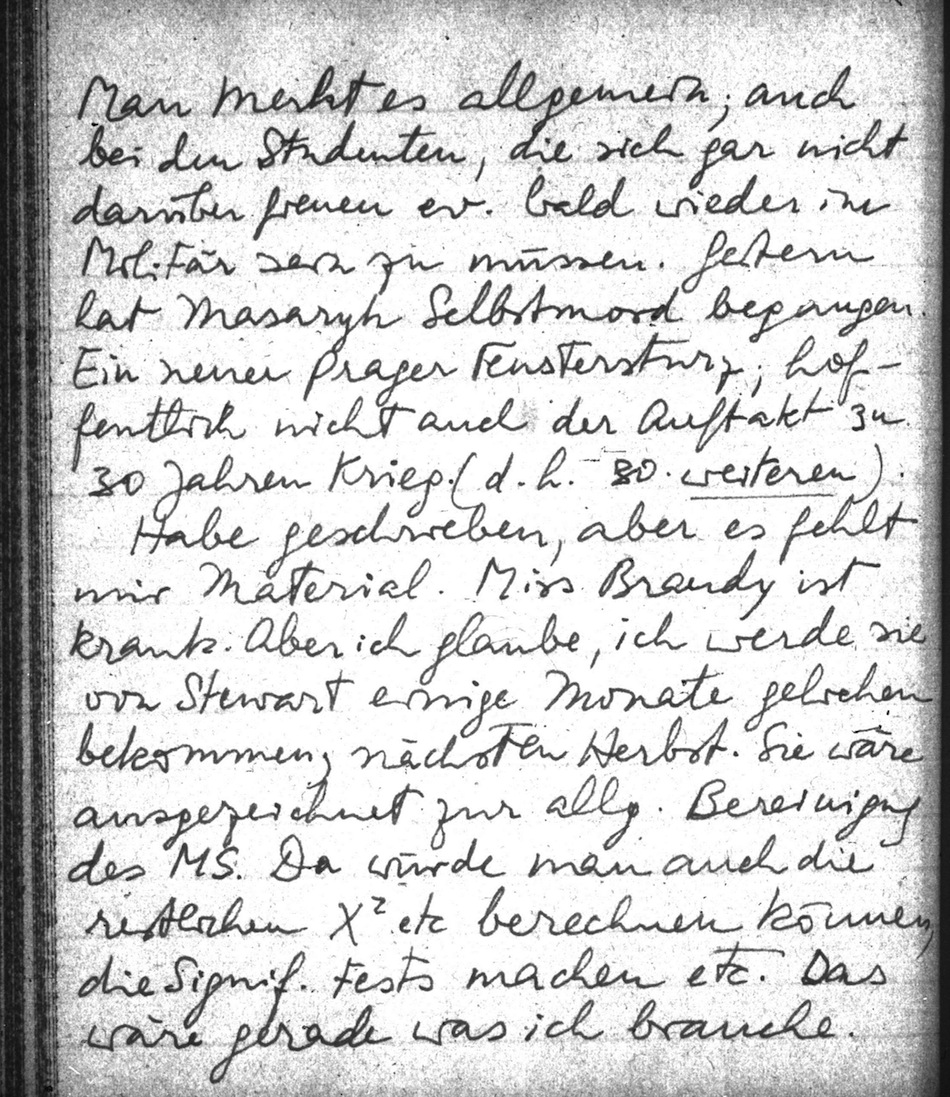 Man merkt es allgemein, auch
bei den Studenten, die sich gar nicht
darüber freuen ev. bald wieder im
Militär sein zu müssen. Gestern
hat Masaryk Selbstmord begangen.
Ein neuer Prager Fenstersturz, hof-
fentlich nicht auch der Auftakt zu
30 Jahren Krieg. (d.h. 30 weiteren).
Habe geschrieben, aber es fehlt
mir Material. Miss Brandy ist
krank. Aber ich glaube, ich werde sie
von Stewart einige Monate geliehen
bekommen, nächsten Herbst. Sie wäre
ausgezeichnet zur allg. Bereinigung
des MS. Da würde man auch die
restlichen X² etc berechnen können,
die Signif. tests machen etc. Das
wäre gerade was ich brauche.